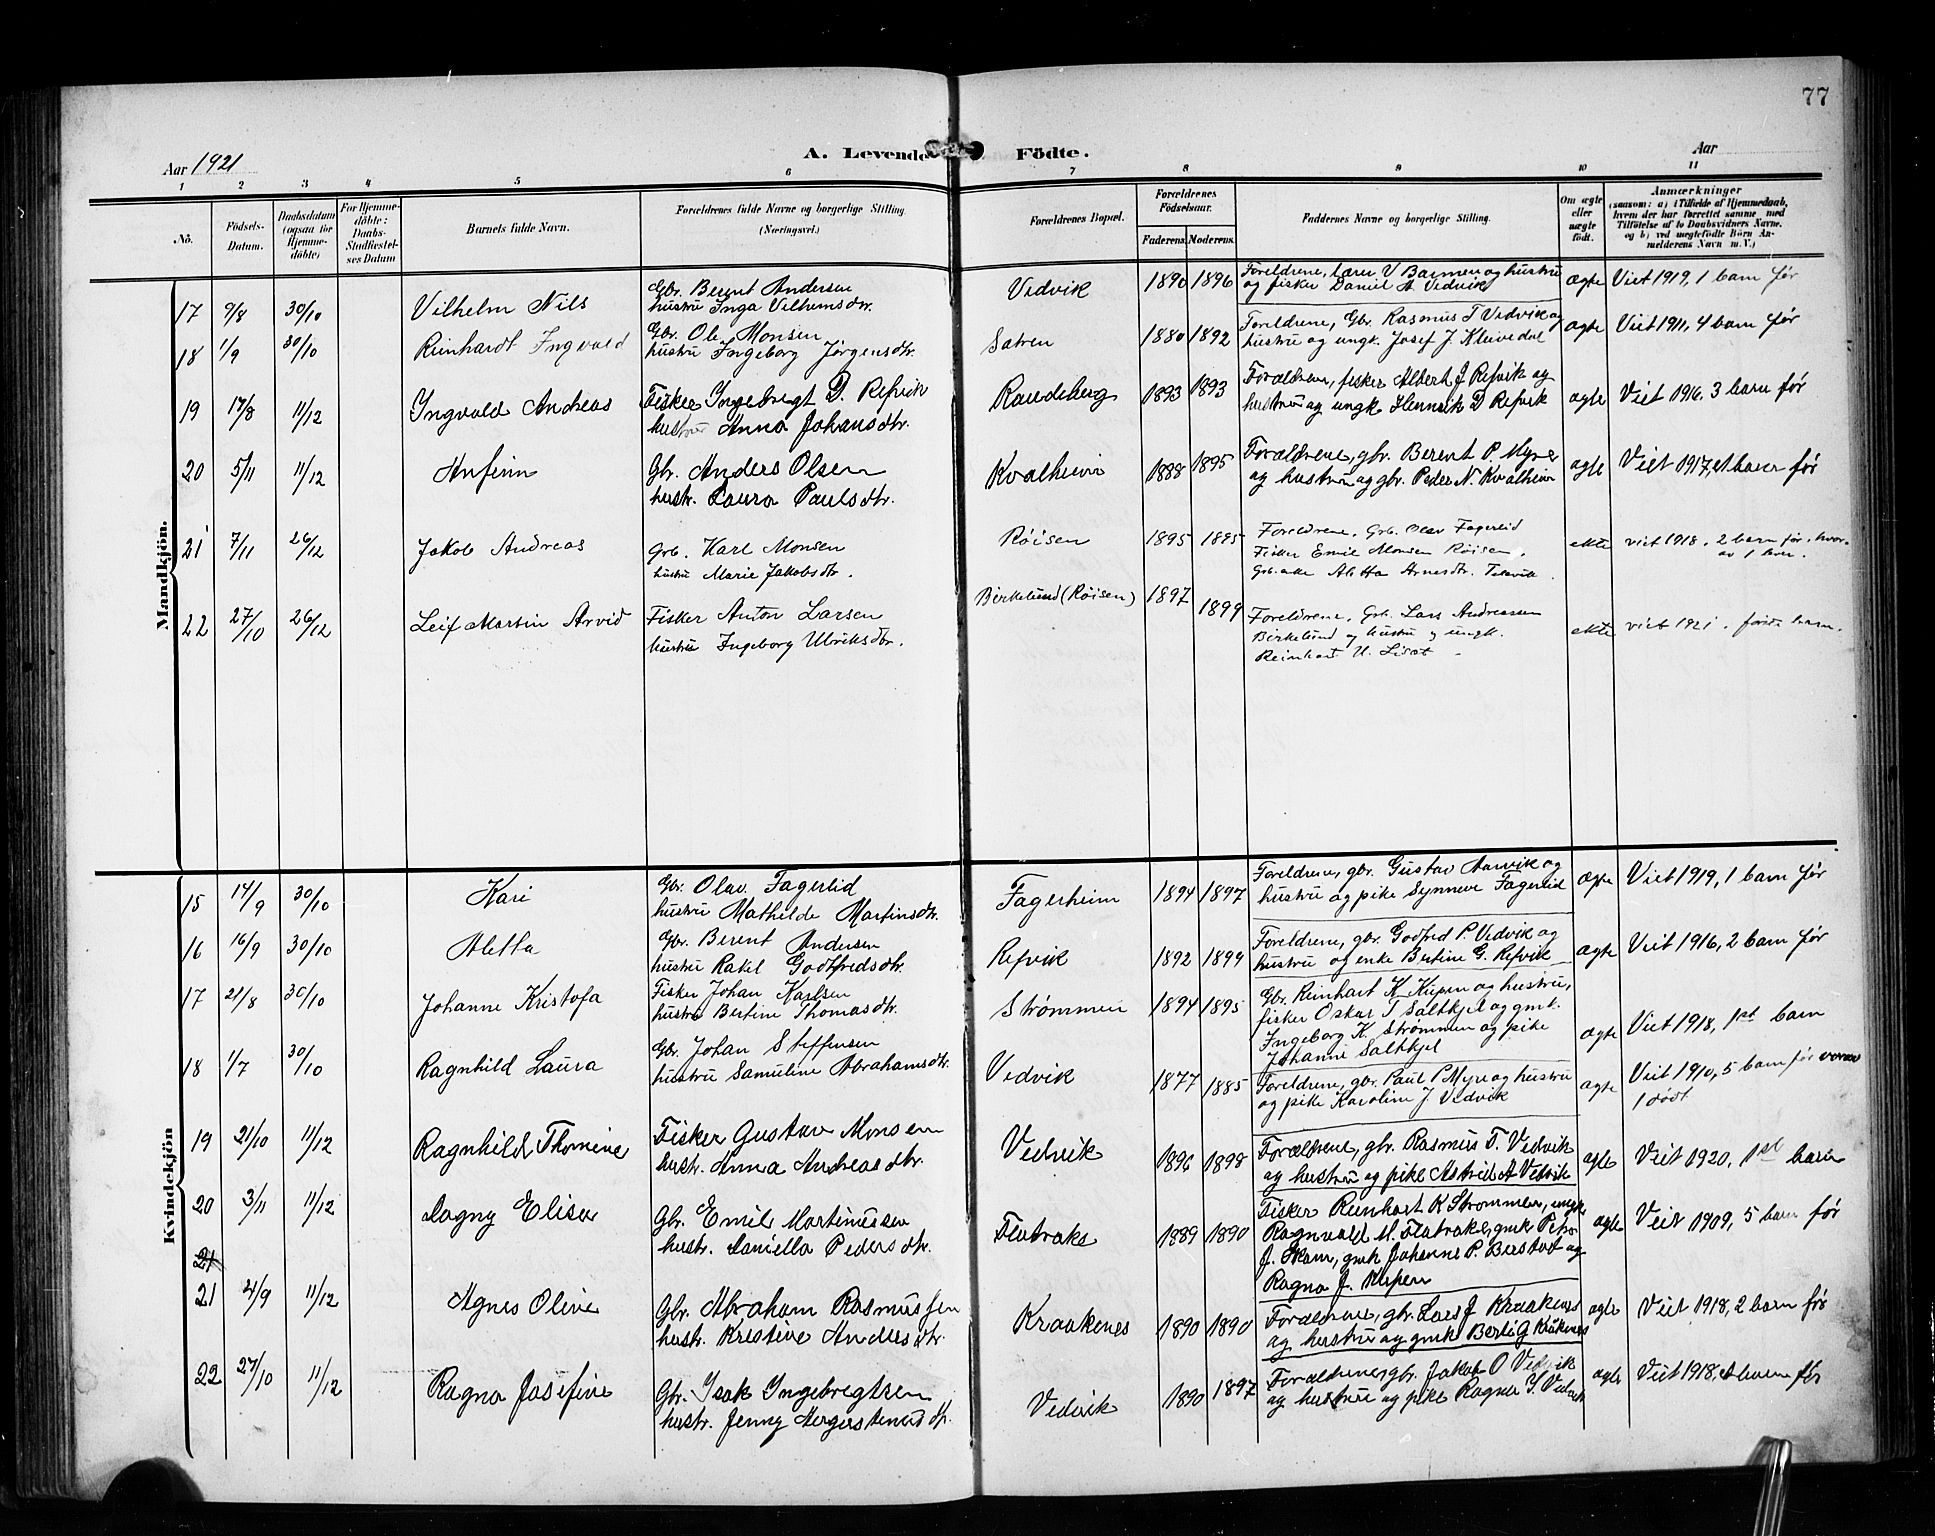 77
Aar 1921
A. Levende Födte.
Aar
1 2 3 4 5 6 7 8 9 10 11
No.
Födsels-Datum.
Daabsdatum (ogsaa for Hjemmedöbte)
For Hjemmedöbte: Daabs-Stadfæstelses Datum
Barnets fulde Navn.
Forældrenes fulde Navne og borgerlige Stilling. (Næringsvei.)
Forældrenes Bopæl.
Forældrenes Födselsaar.
Faderens. Moderens.
Faddernes Navne og borgerlige Stilling.
Om ægte eller uægte födt.
Anmærkninger
(saasom: a) i Tilfælde af Hjemmedaab, hvem der har forrettet samme, med Tilföielse af to Daabsvidners Navne, og b) ved uegtefödte Börn Anmelderens Navn m.V.)
Mandkjön.
17 9/8 30/10 Vilhelm Nils Gbr. Berent Andersen Vedvik 1890 1896 Foreldrene, lærer V Barmen og hustru ægte Viet 1919, 1 barn før
hustru Inga Vilhemsdtr. og fisker Daniel A Vedvik
18 1/9 30/10 Reinhardt Ingvald Gbr. Ole Monsen Satren 1880 1892 Foreldrene, Gbr. Rasmus T Vedvik og ægte Viet 1911, 4 barn før
hustru Ingeborg Jørgensdtr. hustru og ungk. Josef J. Kleivedal
19 17/8 11/12 Ingvald Andreas Fisker Ingebregt D. Refvik Raudeberg 1893 1893 Forældrene, fisker Albert J Refvik og ægte Viet 1916, 3 barn før
hustru Anna Johansdtr. hustru og ungk Henrik D Refvik
20 5/11 11/12 Anfinn Gbr. Anders Olsen Kvalheim 1888 1895 Forældrene, gbr. Berent P. Myre ægte Viet 1917, barn før
hustr. Laura Paulsdtr. og hustru og gbr. Peder N. Kvalheim
21 7/11 26/12 Jakob Andreas Grb. Karl Monsen Røisen 1895 1895 Foreldrene, Grb. Olav Fagerlid ekte viet 1918. 2 barn før, hvor-
hustru Marie Jakobsdtr. Fisker Emil Monsen Røisen. av 1 lever.
Grb. enke Aletta Arnesdtr.
22 27/10 26/12 Leif Martin Arvid Fisker Anton Larsen Birkelund (Røisen) 1897 1899 Foreldrene, Grb. Lars Andreassen ekte viet 1921. første barn.
hustru Ingeborg Ulriksdtr. Birkelund og hustru og ungk.
Reinhart U. Liset
Kvindekjön
15 14/9 30/10 Kari Gbr. Olav Fagerlid Fagerheim 1894 1897 Foreldrene, gbr. Gustav Aarvik og ægte Viet 1919, 1 barn før
hustru Mathilde Martinsdtr. hustru og pike Synneve Fagerlid
16 16/9 30/10 Aletta Gbr. Berent Andersen Refvik 1892 1899 Foreldrene, gbr. Godfred P. Vedvik og ægte Viet 1916, 2 barn før
hustru Rakel Godtfredsdtr. hustru og enke Bertine G. Refvik
17 21/8 30/10 Johanne Kristofa Fisker Johan Karlsen Strømmen 1894 1895 Gbr. Reinhart K Kupen og hustru, ægte Viet 1918, 1st barn
hustru Bertine Thomasdtr. fisker Oskar T Saltkjel og gmk.
Ingeborg K. Strømmen og pike
Johanne Saltkjel
18 1/7 30/10 Ragnhild Laura Gbr. Johan Steffensen Vedvik 1877 1885 Foreldrene, gbr. Paul P Myre og hustru ægte Viet 1910, 5 barn før vorav
hustru Samuline Abrahamsdtr. og pike Karoline J. Vedvik 1 dødt
19 21/10 11/12 Ragnhild Thomine Fisker Gustav Monsen Vedvik 1896 1898 Forældrene, gbr. Rasmus T. Vedvik ægte Viet 1920, 1st barn
hustr. Anna Andreasdtr. og hustru og pike Astrid A Vedvik
20 3/11 11/12 Dagny Elise Gbr. Emil Martinussen Flatraks 1889 1890 Fisker Reinhart K Strømmen, ungk ægte Viet 1909, 5 barn før
hustr. Daniella Pedersdtr. Ragnvald M. Flatraks, gmk Petra
J. Skam, gmk Johanne P. Berstad og
Ragna J. Kupen
21
21 4/9 11/12 Agnes Olive Gbr. Abraham Rasmussen Kraakenes 1890 1890 Forældrene, gbr. Lars J Kraakenes ægte Viet 1918, 2 barn før
hustr. Kristine Andersdtr. og hustru og gmk Berte G Kråkenes
22 27/10 11/12 Ragna Josefine Gbr. Isak Ingebregtsen Vedvik 1890 1897 Forældrene, gbr. Jakob O Vedvik ægte Viet 1918, barn før
hustr. Jenny og hustru og pike Ragna I. Vedvik